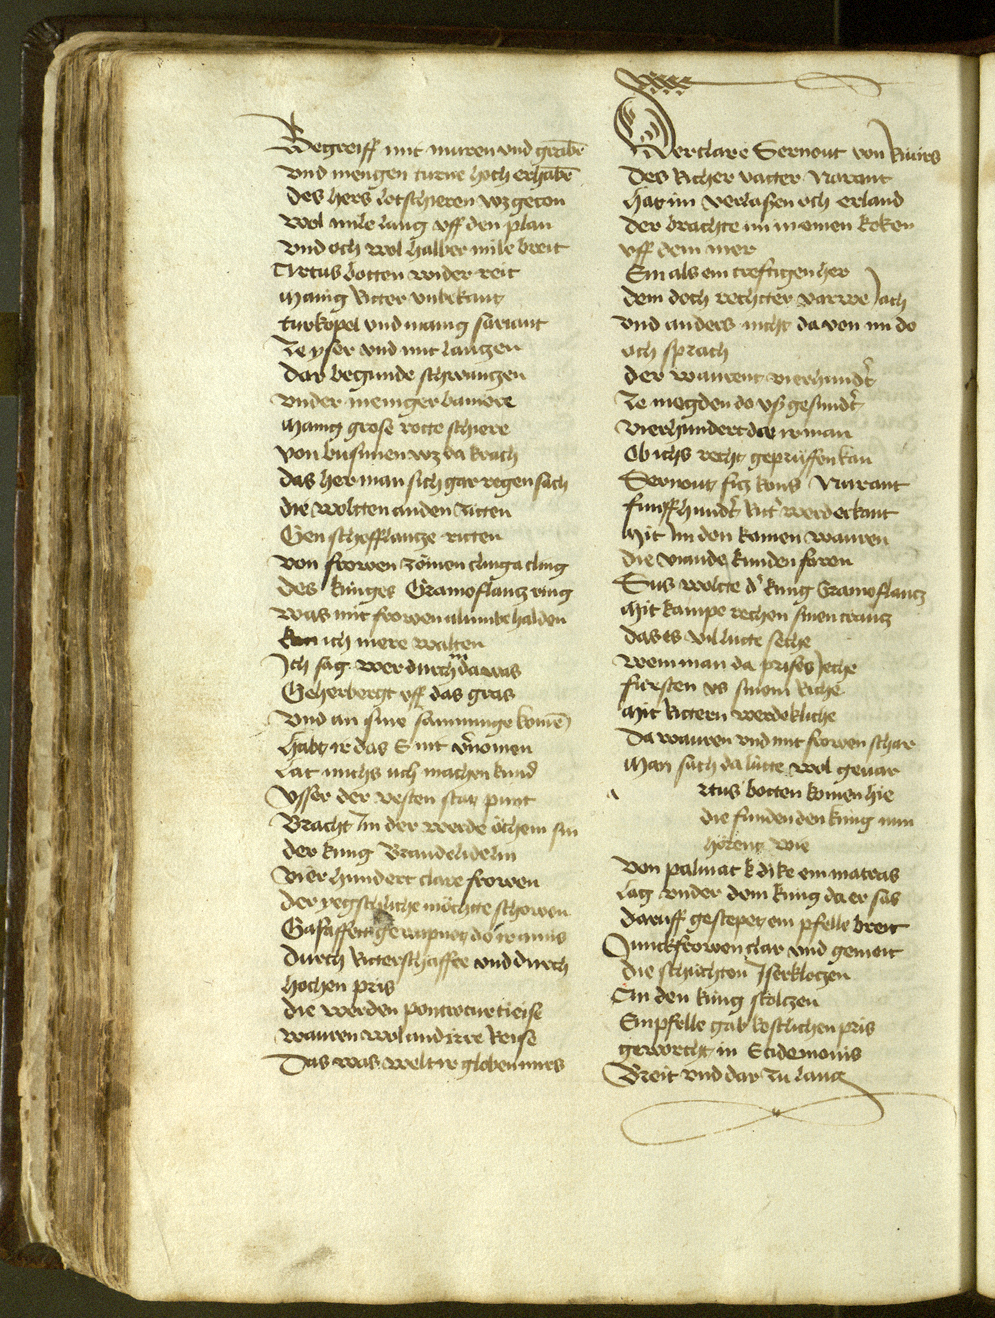 Begreiff mit muren vnd grabē
vnd mengen turne hoch erhabē
des hers letschieren wz geton
wol mile lang vff den plan
vnd och wol halber mile breit
Artus botten wider reit
Manig Ritter vnbekant
turkopel vnd manig sariant
Ze yser vnd mit lantzen
Dar begunde schwantzen
vnder meniger baniere
Manig grose rotte schiere
von businen wz da krach
das her man sich gar regen sach
die woltten an den zitten
Gen scheffllantze ritten
von frowen zömen clinga cling
des kinges Gramoflantz ring
was mit frowen alumbe halden
kan ich mere walten
Ich sag wer durch in da was
Geherbergt vff das gras
vnd an sine samnunge komē
habt ir das E nit v̄nomen
Lat michs uch machen kund
Vsser der vesten stat punt
Bracht Im der werde öchem sin
der kung Brandelidelin
vier hundert clare frowen
der yegschliche möchtte schowen
Gasaffett gewapnet do ir amis
Durch Ritterschafftte vnd durch
hochen pris
die werden pontwturtieise
wauren wol an dirre Reise
Das was welt ir globen mirs
Der clare Bernout von Riuirs
Des Richer vatter Narant
hat im verlasen och erland
der brachte im in einen koken
vff dem mer
Ein als ein creftigen her
dem doch rechtter varwe Iach
vnd anders nicht da von im do
och sprach
der waurent vierhundt̄
Ze megden do vsz gesundt̄
vierhundert der ir man
Ob ichs recht geprüffen kan
Bernout fitz kons Narant
funffhundt̄ Rit̄ werd erkant
Mit Im don komen wauren
die viande kunden foren
Sus wolte d̄ king Gramoflantz
Mit kampe rechen sinen crantz
das es vil lutte seche
wem man da prises Ieche
fürsten vs sinem Riche
Mit Rittern werdekliche
Da wauren vnd mit frowen schar
Man sach da lütte wol gevar
a rtus botten komen hie
die funden den king nun
hörent wie
von palmat k dike ein matras
Lag vnder dem king da er sas
daruff gestepet ein pfelle breit
Junckfrowen clar vnd gemeit
die schuchten Iserkoltzen
An den king stoltzen
Ein pfelle gab kostlichen pris
geworcht in Ecidemonis
Breit vnd dar zu lang